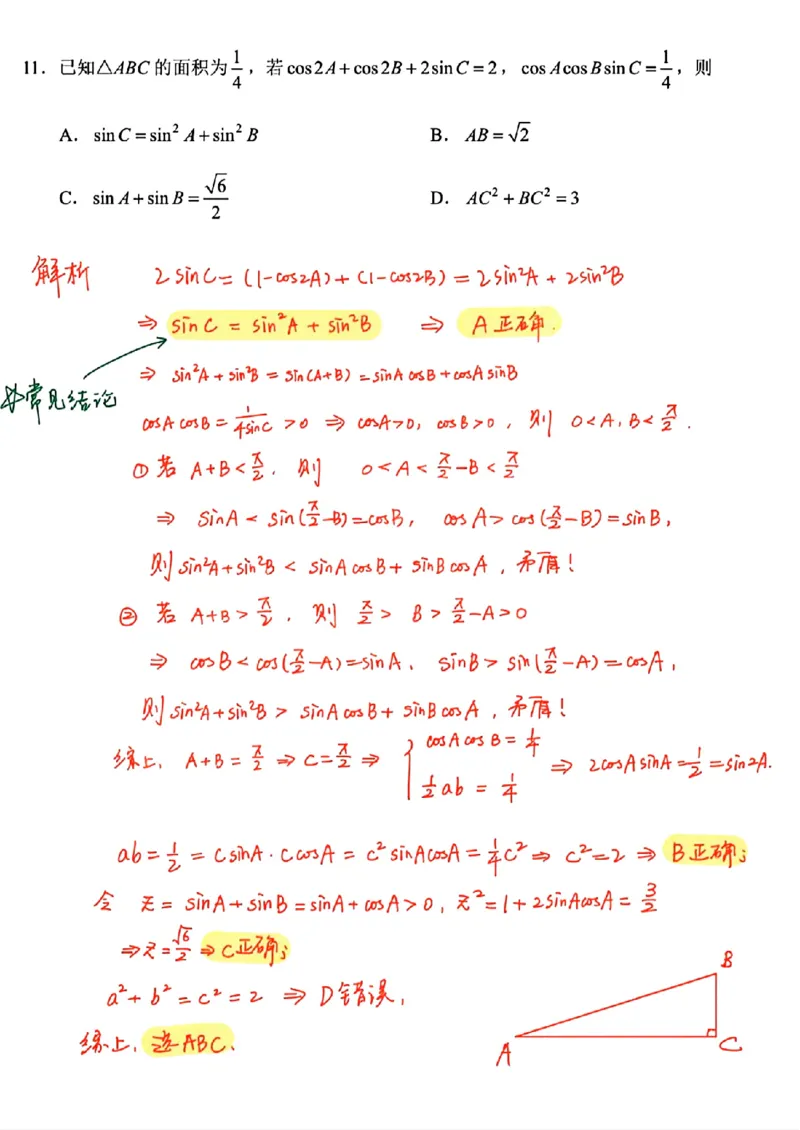 11. 已知△ABC 的面积为 1/4，若 cos2A+cos2B+2sinC=2，cosAcosBsinC=1/4，则
A. sinC=sin²A+sin²B B. AB=√2
C. sinA+sinB=√6/2 D. AC²+BC²=3
解析 2sinC=(1-cos2A)+(1-cos2B)=2sin²A+2sin²B
⇒ sinC=sin²A+sin²B ⇒ A正确.
⇒ sin²A+sin²B=sin(A+B)=sinAcosB+cosAsinB
常见结论
cosAcosB=1/(4sinC)>0 ⇒ cosA>0, cosB>0, 则 0<A,B<π/2.
① 若 A+B<π/2, 则 0<A<π/2-B<π/2
⇒ sinA<sin(π/2-B)=cosB, cosA>cos(π/2-B)=sinB,
则 sin²A+sin²B<sinAcosB+sinBcosA, 矛盾!
② 若 A+B>π/2, 则 π/2>B>π/2-A>0
⇒ cosB<cos(π/2-A)=sinA, sinB>sin(π/2-A)=cosA,
则 sin²A+sin²B>sinAcosB+sinBcosA, 矛盾!
综上, A+B=π/2 ⇒ C=π/2 ⇒ { cosAcosB=1/4
1/2ab=1/4 ⇒ 2cosAsinA=1/2=sin2A.
ab=1/2=csinA·ccosA=c²sinAcosA=1/4c² ⇒ c²=2 ⇒ B正确;
令 z=sinA+sinB=sinA+cosA>0, z²=1+2sinAcosA=3/2
⇒ z=√6/2 ⇒ C正确;
a²+b²=c²=2 ⇒ D错误,
综上, 选ABC.
B
A
C